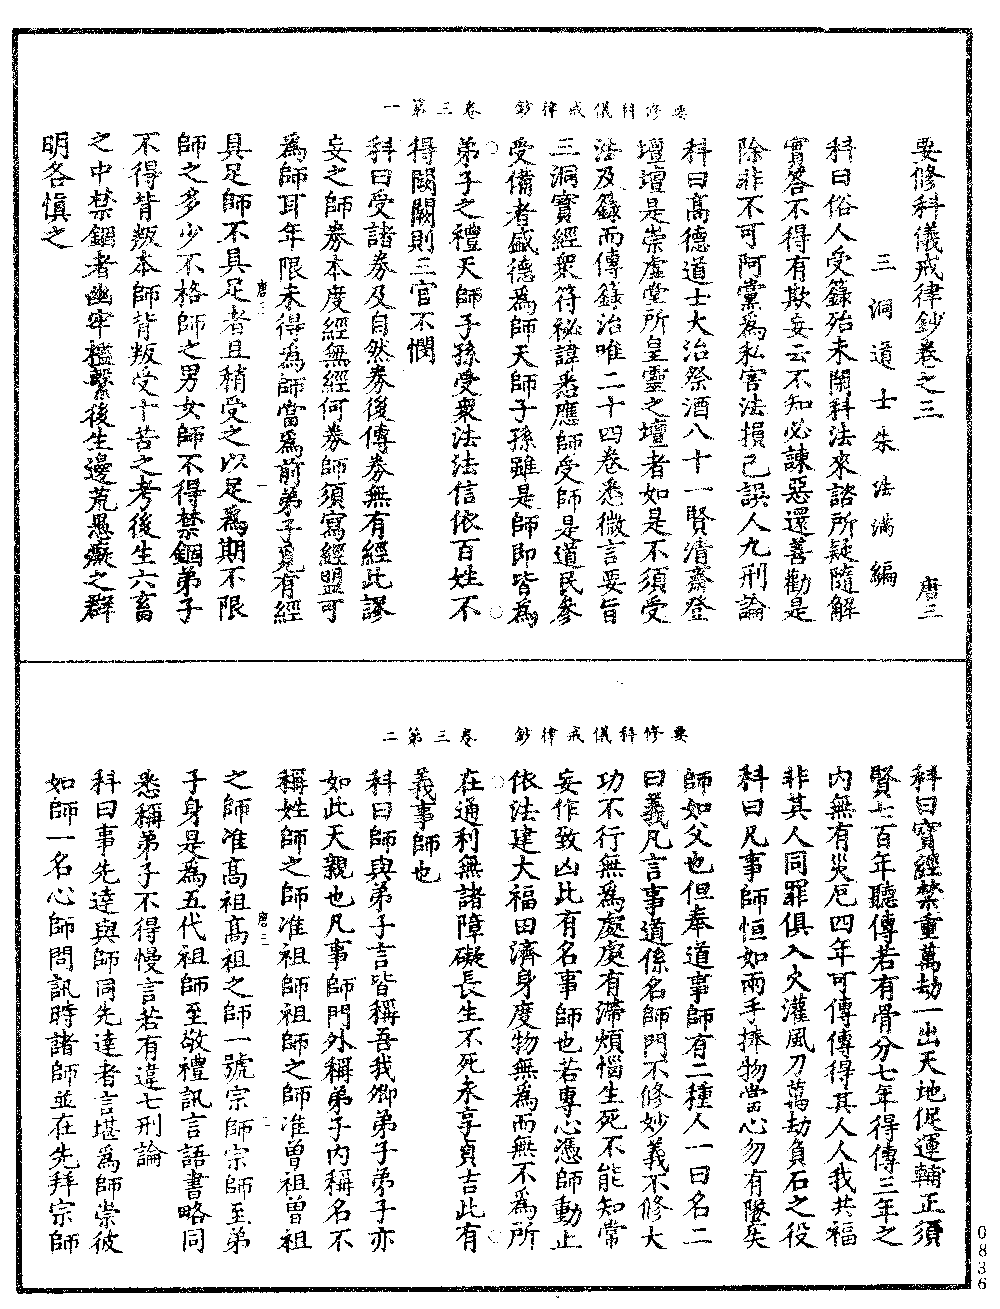 要修科儀戒律鈔　卷三第一
要修科儀戒律鈔卷之三　唐三
三洞道士朱法滿編
科曰俗人受籙殆未閑科法來諮所疑隨解
實答不得有欺妄云不知必諫惡還善勸是
除非不可阿黨爲私害法損己誤人九刑論
科曰高德道士大治祭酒八十一賢清齋登
壇壇是崇虛堂所皇靈之壇者如是不須受
法及籙而傳籙治唯二十四卷悉微言要旨
三洞寶經衆符祕諱悉應師受師是道民參
受備者盛德爲師天師子孫雖是師即皆爲
弟子之禮天師子孫受衆法法信依百姓不
得闕闕則三官不憫
科曰受諸券及自然券後傳券無有經此謬
妄之師券本度經無經何券師須寫經盟可
爲師耳年限未得爲師當爲前弟子覓有經
具足師不具足者且稍受之以足爲期不限
師之多少不格師之男女師不得禁錮弟子
不得背叛本師背叛受十苦之考後生六畜
之中禁錮者幽牢檻繫後生邊荒愚癡之群
明各慎之
要修科儀戒律鈔　卷三第二
科曰寶經禁重萬劫一出天地促運輔正須
賢七百年聽傳若有骨分七年得傳三年之
內無有災厄四年可傳傳得其人人我共福
非其人同罪俱入火灌風刀萬劫負石之役
科曰凡事師恒如兩手捧物當心勿有墜失
師如父也但奉道事師有二種人一曰名二
曰義凡言事道係名師門不修妙義不修大
功不行無爲處處有滯煩惱生死不能知常
妄作致凶此有名事師也若專心憑師動止
依法建大福田濟身度物無爲而無不爲所
在通利無諸障礙長生不死永享貞吉此有
義事師也
科曰師與弟子言皆稱吾我卿弟子弟子亦
如此天親也凡事師門外稱弟子內稱名不
稱姓師之師准祖師祖師之師准曾祖曾祖
之師准高祖高祖之師一號宗師宗師至弟
子身是爲五代祖師至敬禮訊言語書略同
悉稱弟子不得慢言若有違七刑論
科曰事先達與師同先達者言堪爲師崇彼
如師一名心師問訊時諸師並在先拜宗師
唐三
0836